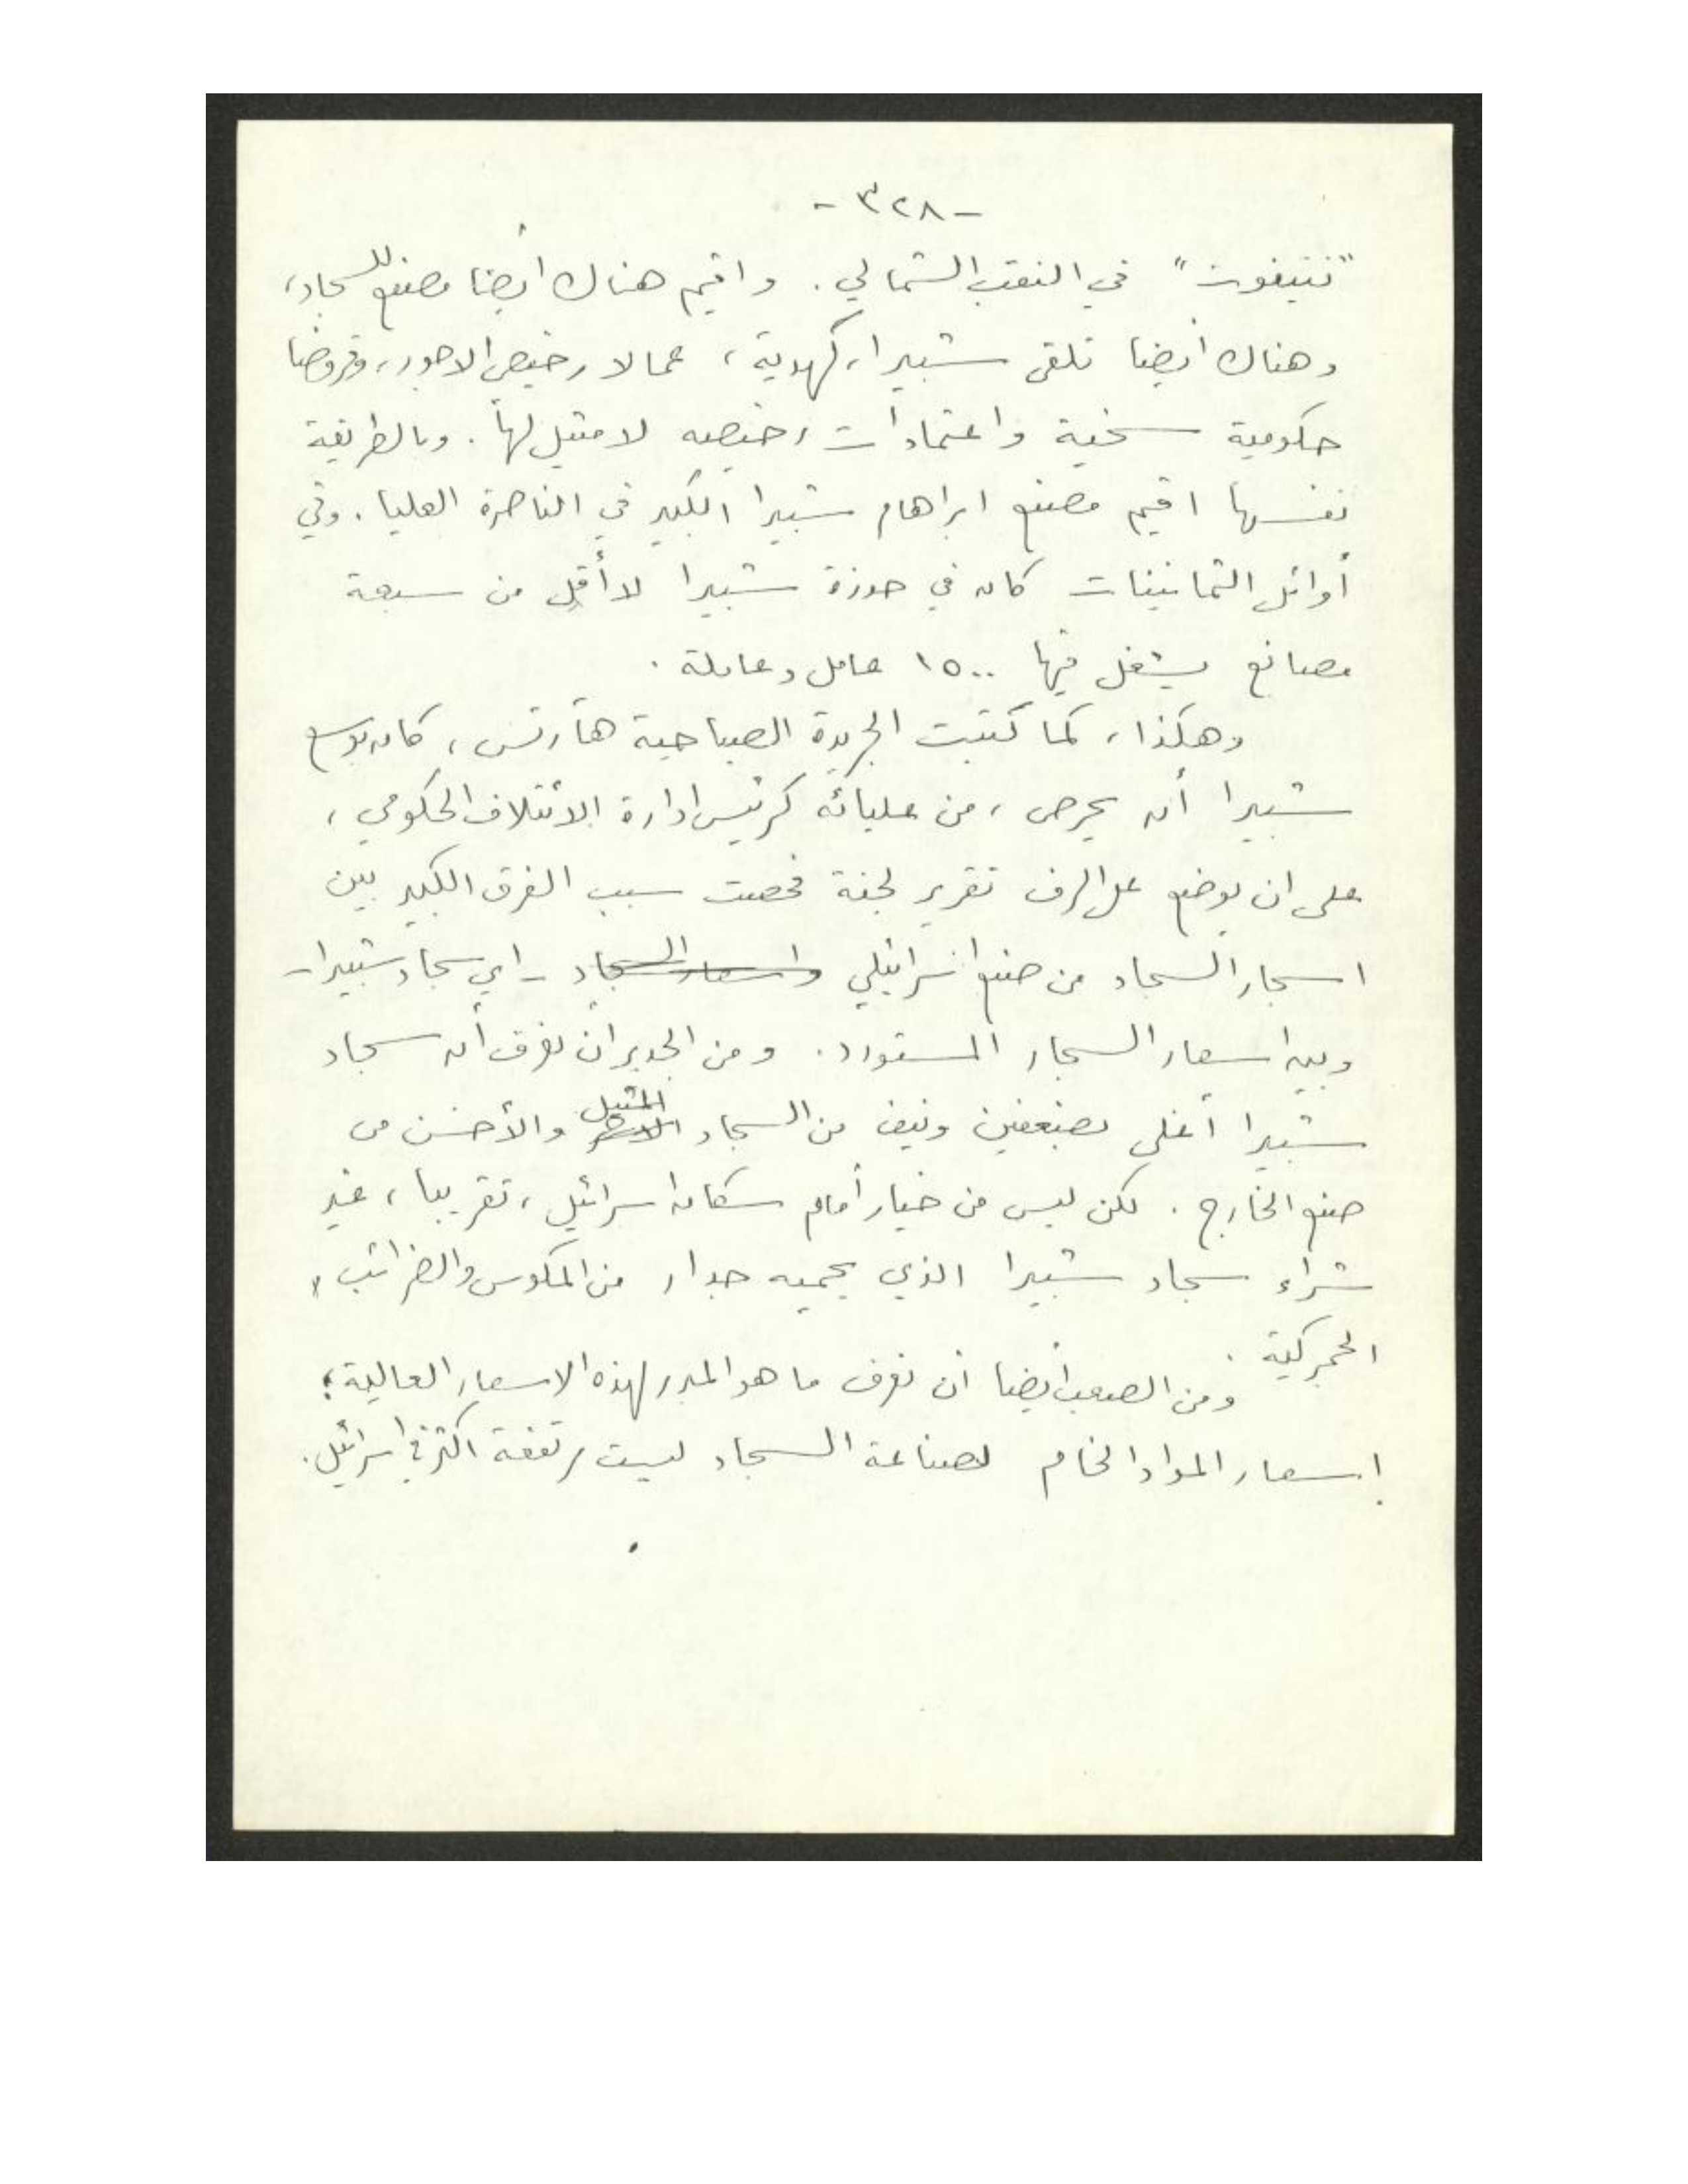 - ٣٢٨ -
"نتيفوت" في النقب الشمالي. واقيم هناك أيضا مصنع للسجاد،
وهناك أيضا تلقى شبيرا، كهدية، عمالا رخيصي الاجور، وقروضا
حكومية سخية واعتمادات رخيصه لا مثيل لها. وبالطريقة
نفسها اقيم مصنع ابراهام شبيرا الكبير في الناصرة العليا. وفي
أوائل الثمانينات كان في حوزة شبيرا لا أقل من سبعة
مصانع يشغل فيها ١٥٠٠ عامل وعاملة.
وهكذا، كما كتبت الجريدة الصباحية هآرتس، كان بوسع
شبيرا أن يحرص، من عليائه كرئيس ادارة الائتلاف الحكومي،
على ان يوضع على الرف تقرير لجنة فحصت سبب الفرق الكبير بين
اسجار السجاد من صنع اسرائيلي واسعار السجاد - اي سجاد شبيرا -
وبين اسعار السجار المستورد. ومن الجدير ان نعرف أن سجاد
شبيرا أغلى بضعفين ونيف من السجاد المثيل والأحسن من
صنع الخارج. لكن ليس من خيار أمام سكان اسرائيل، تقريبا، غير
شراء سجاد شبيرا الذي يحميه جدار من المكوس والضرائب
الجمركية.
ومن الصعب أيضا ان نعرف ما هو المبرر لهذه الاسعار العالية؛
اسعار المواد الخام لصناعة السجاد ليست مرتفعة اكثر في اسرائيل.